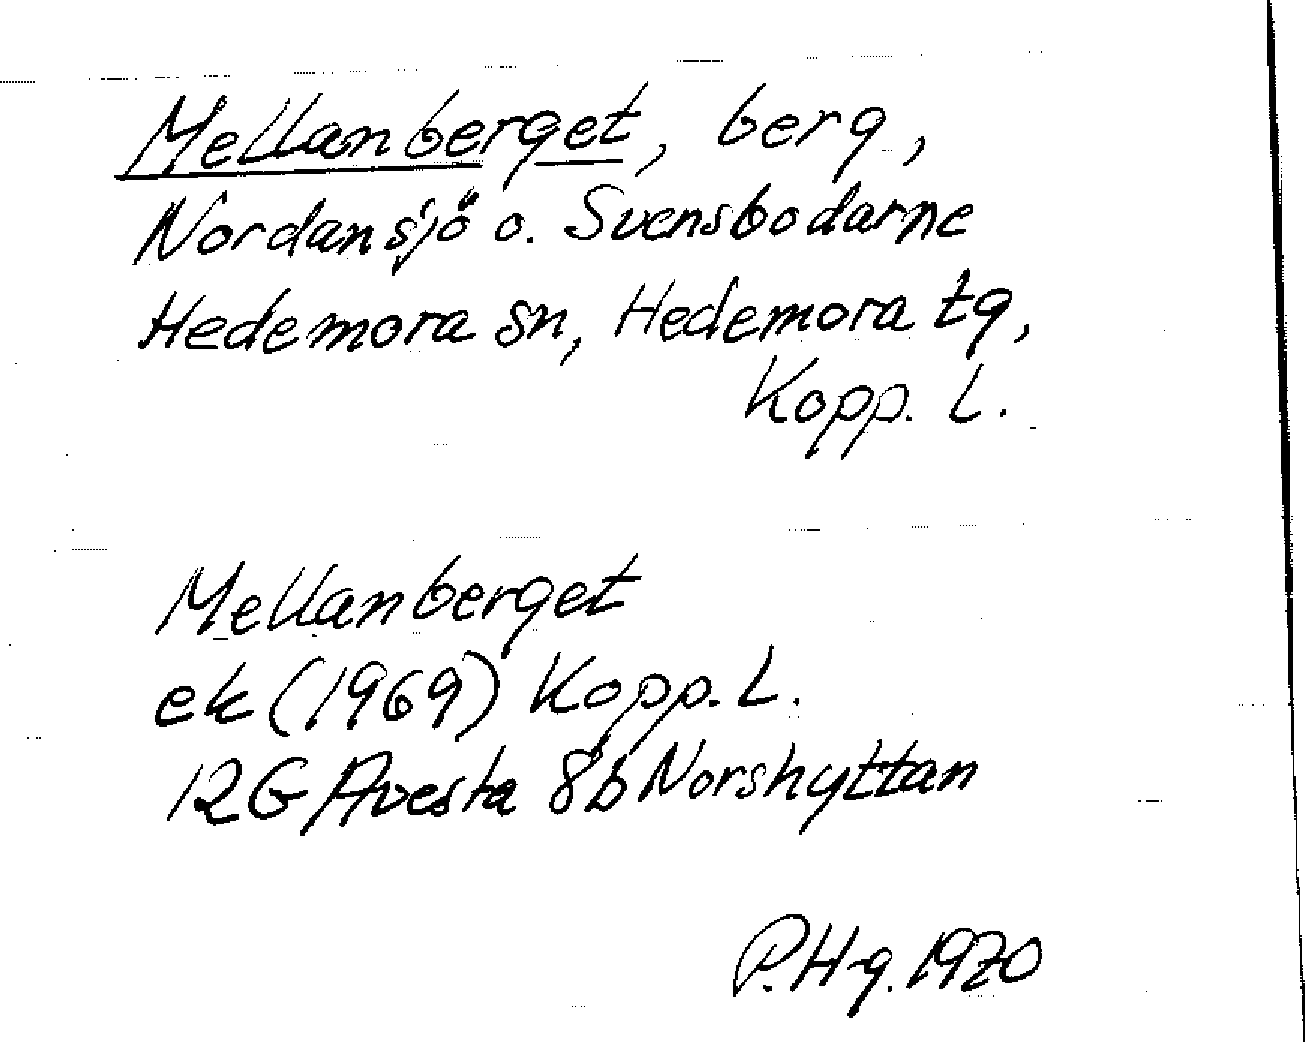 Mellanberget, berg,
Nordansjö o. Svensbodarne
Hedemora sn, Hedemora tg,
Kopp. L.
Mellanberget
ek (1969) Kopp. L.
12G Avesta 8b Norshyttan
P. H-g. 1970